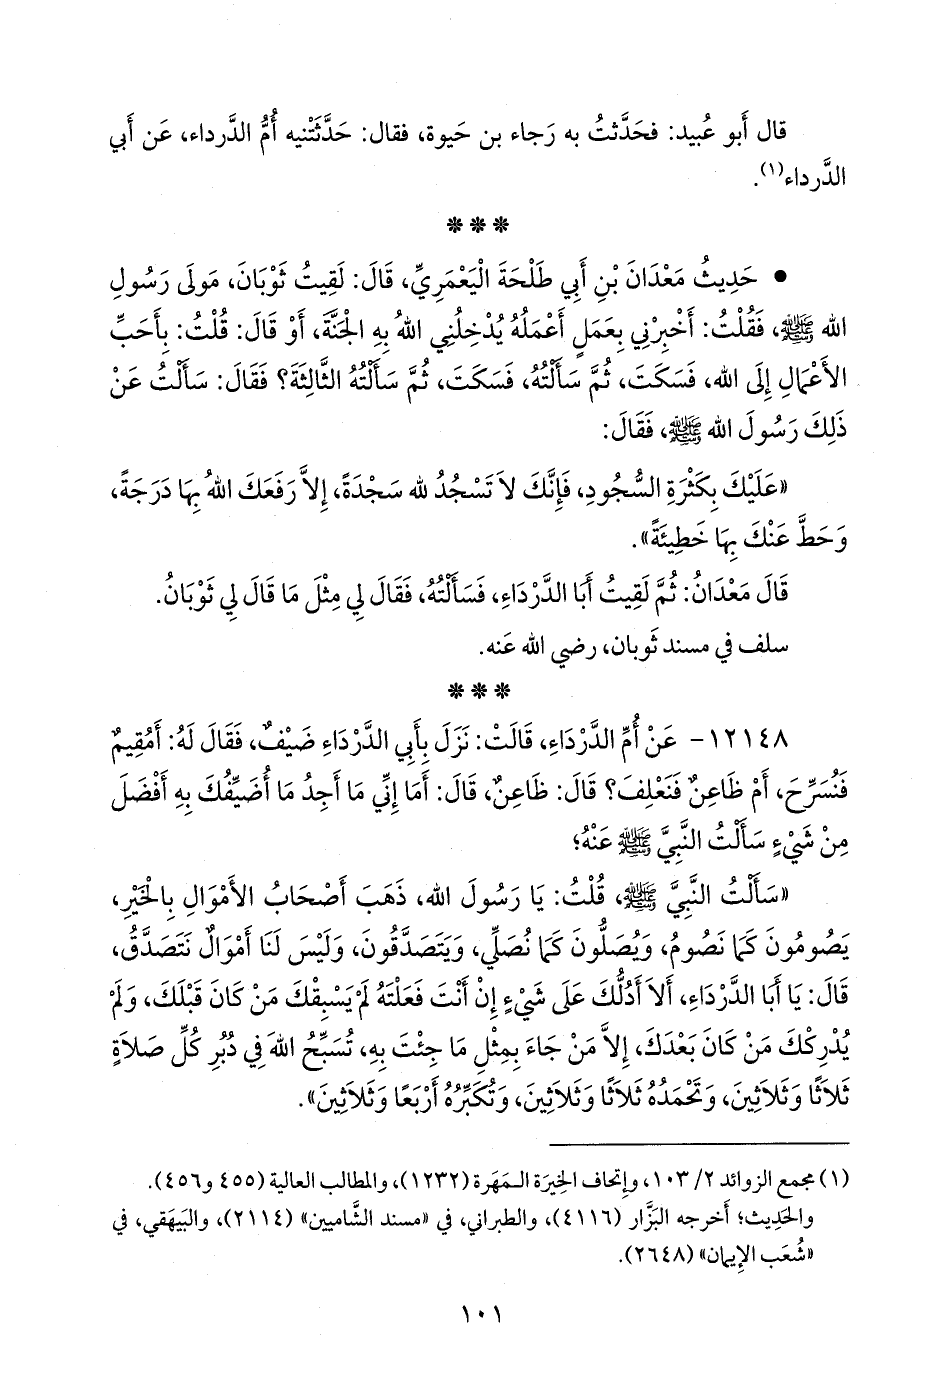 قال أَبو عُبيد: فحَدَّثتُ به رَجاء بن حَيوة، فقال: حَدَّثَتْنيه أُمُّ الدَّرداء، عَن أَبي
الدَّرداء(١).
* * *
• حَدِيثُ مَعْدَانَ بْنِ أَبِي طَلْحَةَ الْيَعْمَرِيِّ، قَالَ: لَقِيتُ ثَوْبَانَ، مَولَى رَسُولِ
الله ﷺ، فَقُلْتُ: أَخْبِرْنِي بِعَمَلٍ أَعْمَلُهُ يُدْخِلُنِي اللهُ بِهِ الْجَنَّةَ، أَوْ قَالَ: قُلْتُ: بِأَحَبِّ
الأَعْمَالِ إِلَى الله، فَسَكَتَ، ثُمَّ سَأَلْتُهُ، فَسَكَتَ، ثُمَّ سَأَلْتُهُ الثَّالِثَةَ؟ فَقَالَ: سَأَلْتُ عَنْ
ذَلِكَ رَسُولَ الله ﷺ، فَقَالَ:
«عَلَيْكَ بِكَثْرَةِ السُّجُودِ، فَإِنَّكَ لاَ تَسْجُدُ لله سَجْدَةً، إِلاَّ رَفَعَكَ اللهُ بِهَا دَرَجَةً،
وَحَطَّ عَنْكَ بِهَا خَطِيئَةً».
قَالَ مَعْدَانُ: ثُمَّ لَقِيتُ أَبَا الدَّرْدَاءِ، فَسَأَلْتُهُ، فَقَالَ لِي مِثْلَ مَا قَالَ لِي ثَوْبَانُ.
سلف في مسند ثَوبان، رضي الله عَنه.
* * *
١٢١٤٨- عَنْ أُمِّ الدَّرْدَاءِ، قَالَتْ: نَزَلَ بِأَبِي الدَّرْدَاءِ ضَيْفٌ، فَقَالَ لَهُ: أَمُقِيمٌ
فَنُسَرِّحَ، أَمْ ظَاعِنٌ فَنَعْلِفَ؟ قَالَ: ظَاعِنٌ، قَالَ: أَمَا إِنِّي مَا أَجِدُ مَا أُضَيِّفُكَ بِهِ أَفْضَلَ
مِنْ شَيْءٍ سَأَلْتُ النَّبِيَّ ﷺ عَنْهُ؛
«سَأَلْتُ النَّبِيَّ ﷺ، قُلْتُ: يَا رَسُولَ الله، ذَهَبَ أَصْحَابُ الأَمْوَالِ بِالْخَيْرِ،
يَصُومُونَ كَمَا نَصُومُ، وَيُصَلُّونَ كَمَا نُصَلِّي، وَيَتَصَدَّقُونَ، وَلَيْسَ لَنَا أَمْوَالٌ نَتَصَدَّقُ،
قَالَ: يَا أَبَا الدَّرْدَاءِ، أَلاَ أَدُلُّكَ عَلَى شَيْءٍ إِنْ أَنْتَ فَعَلْتَهُ لَمْ يَسْبِقْكَ مَنْ كَانَ قَبْلَكَ، وَلَمْ
يُدْرِكْكَ مَنْ كَانَ بَعْدَكَ، إِلاَّ مَنْ جَاءَ بِمِثْلِ مَا جِئْتَ بِهِ، تُسَبِّحُ اللهَ فِي دُبُرِ كُلِّ صَلاَةٍ
ثَلاَثًا وَثَلاَثِينَ، وَتَحْمَدُهُ ثَلاَثًا وَثَلاَثِينَ، وَتُكَبِّرُهُ أَرْبَعًا وَثَلاَثِينَ».
(١) مجمع الزوائد ٢/ ١٠٣، وإِتحاف الخِيرَة الـمَهَرة (١٢٣٢)، والمطالب العالية (٤٥٥ و٤٥٦).
والحَدِيث؛ أَخرجه البَزَّار (٤١١٦)، والطبراني، في «مسند الشَّاميين» (٢١١٤)، والبَيهَقي، في
«شُعَب الإِيمان» (٢٦٤٨).
١٠١